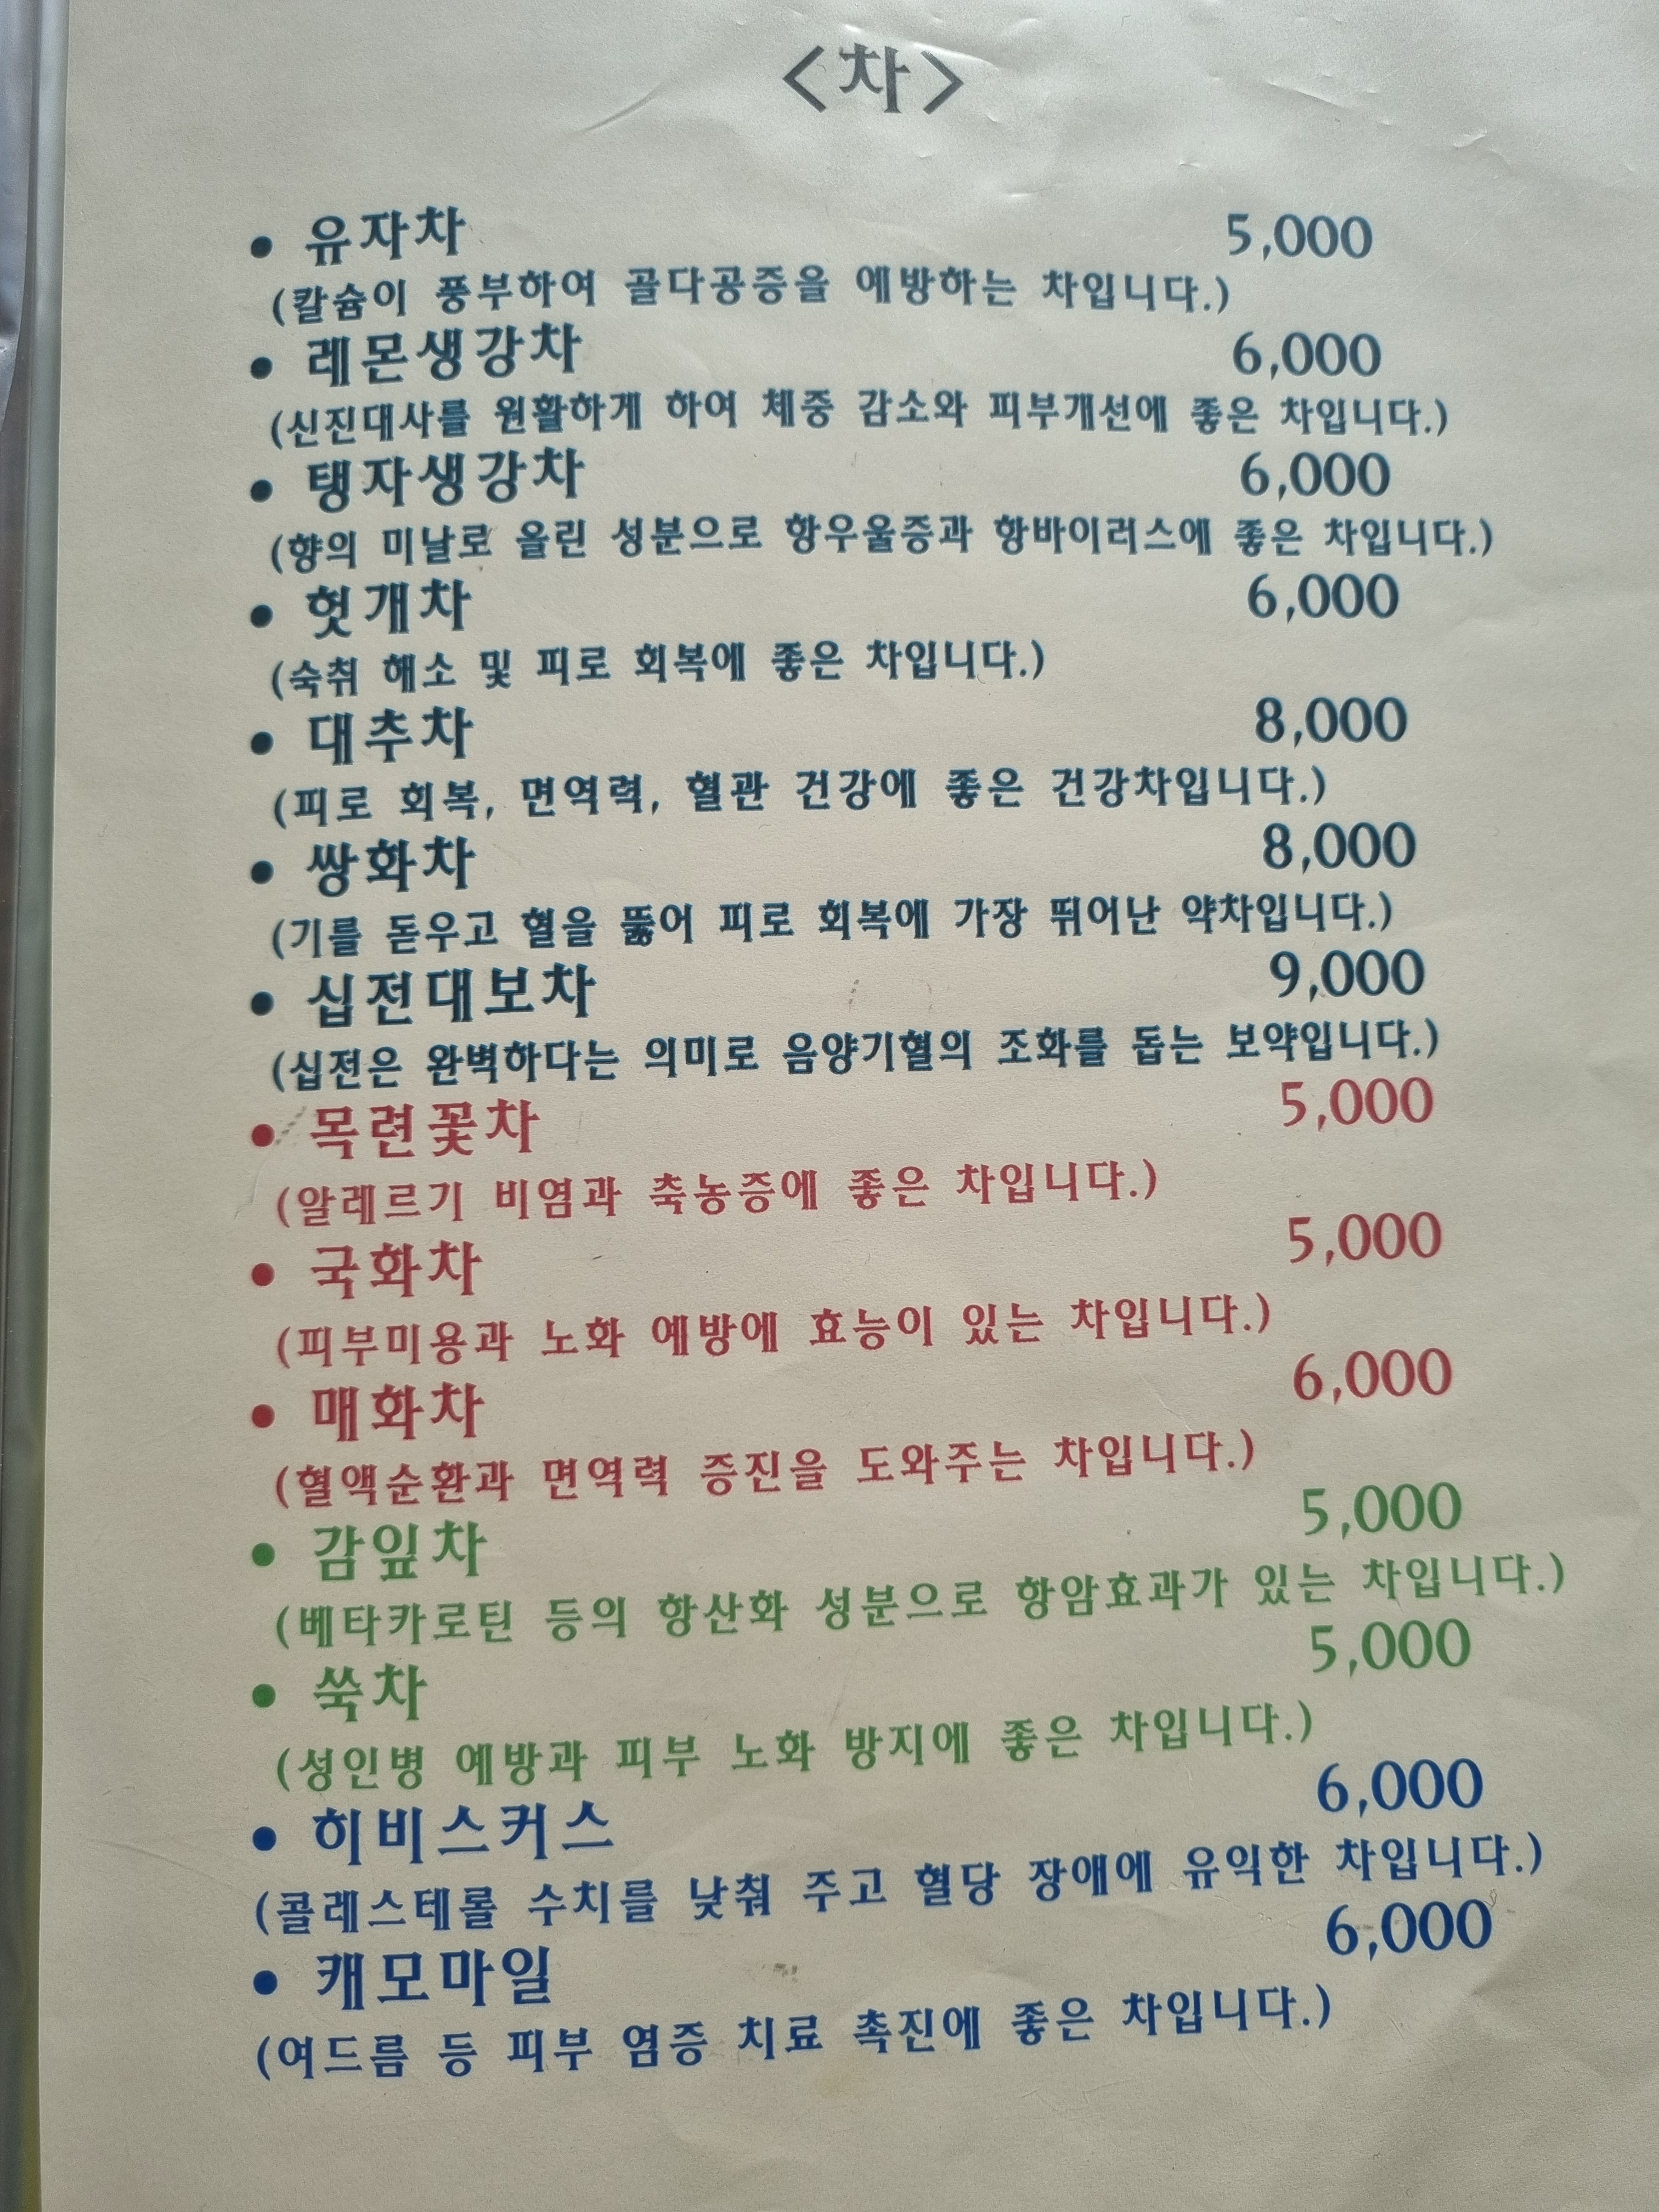 <차>
• 유자차 5,000
(칼슘이 풍부하여 골다공증을 예방하는 차입니다.)
• 레몬생강차 6,000
(신진대사를 원활하게 하여 체중 감소와 피부개선에 좋은 차입니다.)
• 탱자생강차 6,000
(향의 미날로 올린 성분으로 항우울증과 항바이러스에 좋은 차입니다.)
• 헛개차 6,000
(숙취 해소 및 피로 회복에 좋은 차입니다.)
• 대추차 8,000
(피로 회복, 면역력, 혈관 건강에 좋은 건강차입니다.)
• 쌍화차 8,000
(기를 돋우고 혈을 뚫어 피로 회복에 가장 뛰어난 약차입니다.)
• 십전대보차 9,000
(십전은 완벽하다는 의미로 음양기혈의 조화를 돕는 보약입니다.)
• 목련꽃차 5,000
(알레르기 비염과 축농증에 좋은 차입니다.)
• 국화차 5,000
(피부미용과 노화 예방에 효능이 있는 차입니다.)
• 매화차 6,000
(혈액순환과 면역력 증진을 도와주는 차입니다.)
• 감잎차 5,000
(베타카로틴 등의 항산화 성분으로 항암효과가 있는 차입니다.)
• 쑥차 5,000
(성인병 예방과 피부 노화 방지에 좋은 차입니다.)
• 히비스커스 6,000
(콜레스테롤 수치를 낮춰 주고 혈당 장애에 유익한 차입니다.)
• 캐모마일 6,000
(여드름 등 피부 염증 치료 촉진에 좋은 차입니다.)